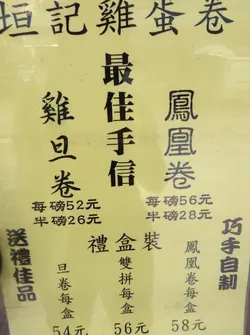 垣記雞蛋卷
最佳手信
雞旦卷
每磅52元
半磅26元
鳳凰卷
每磅56元
半磅28元
送禮佳品
巧手自制
禮盒裝
旦卷每盒54元
雙拼每盒56元
鳳凰卷每盒58元